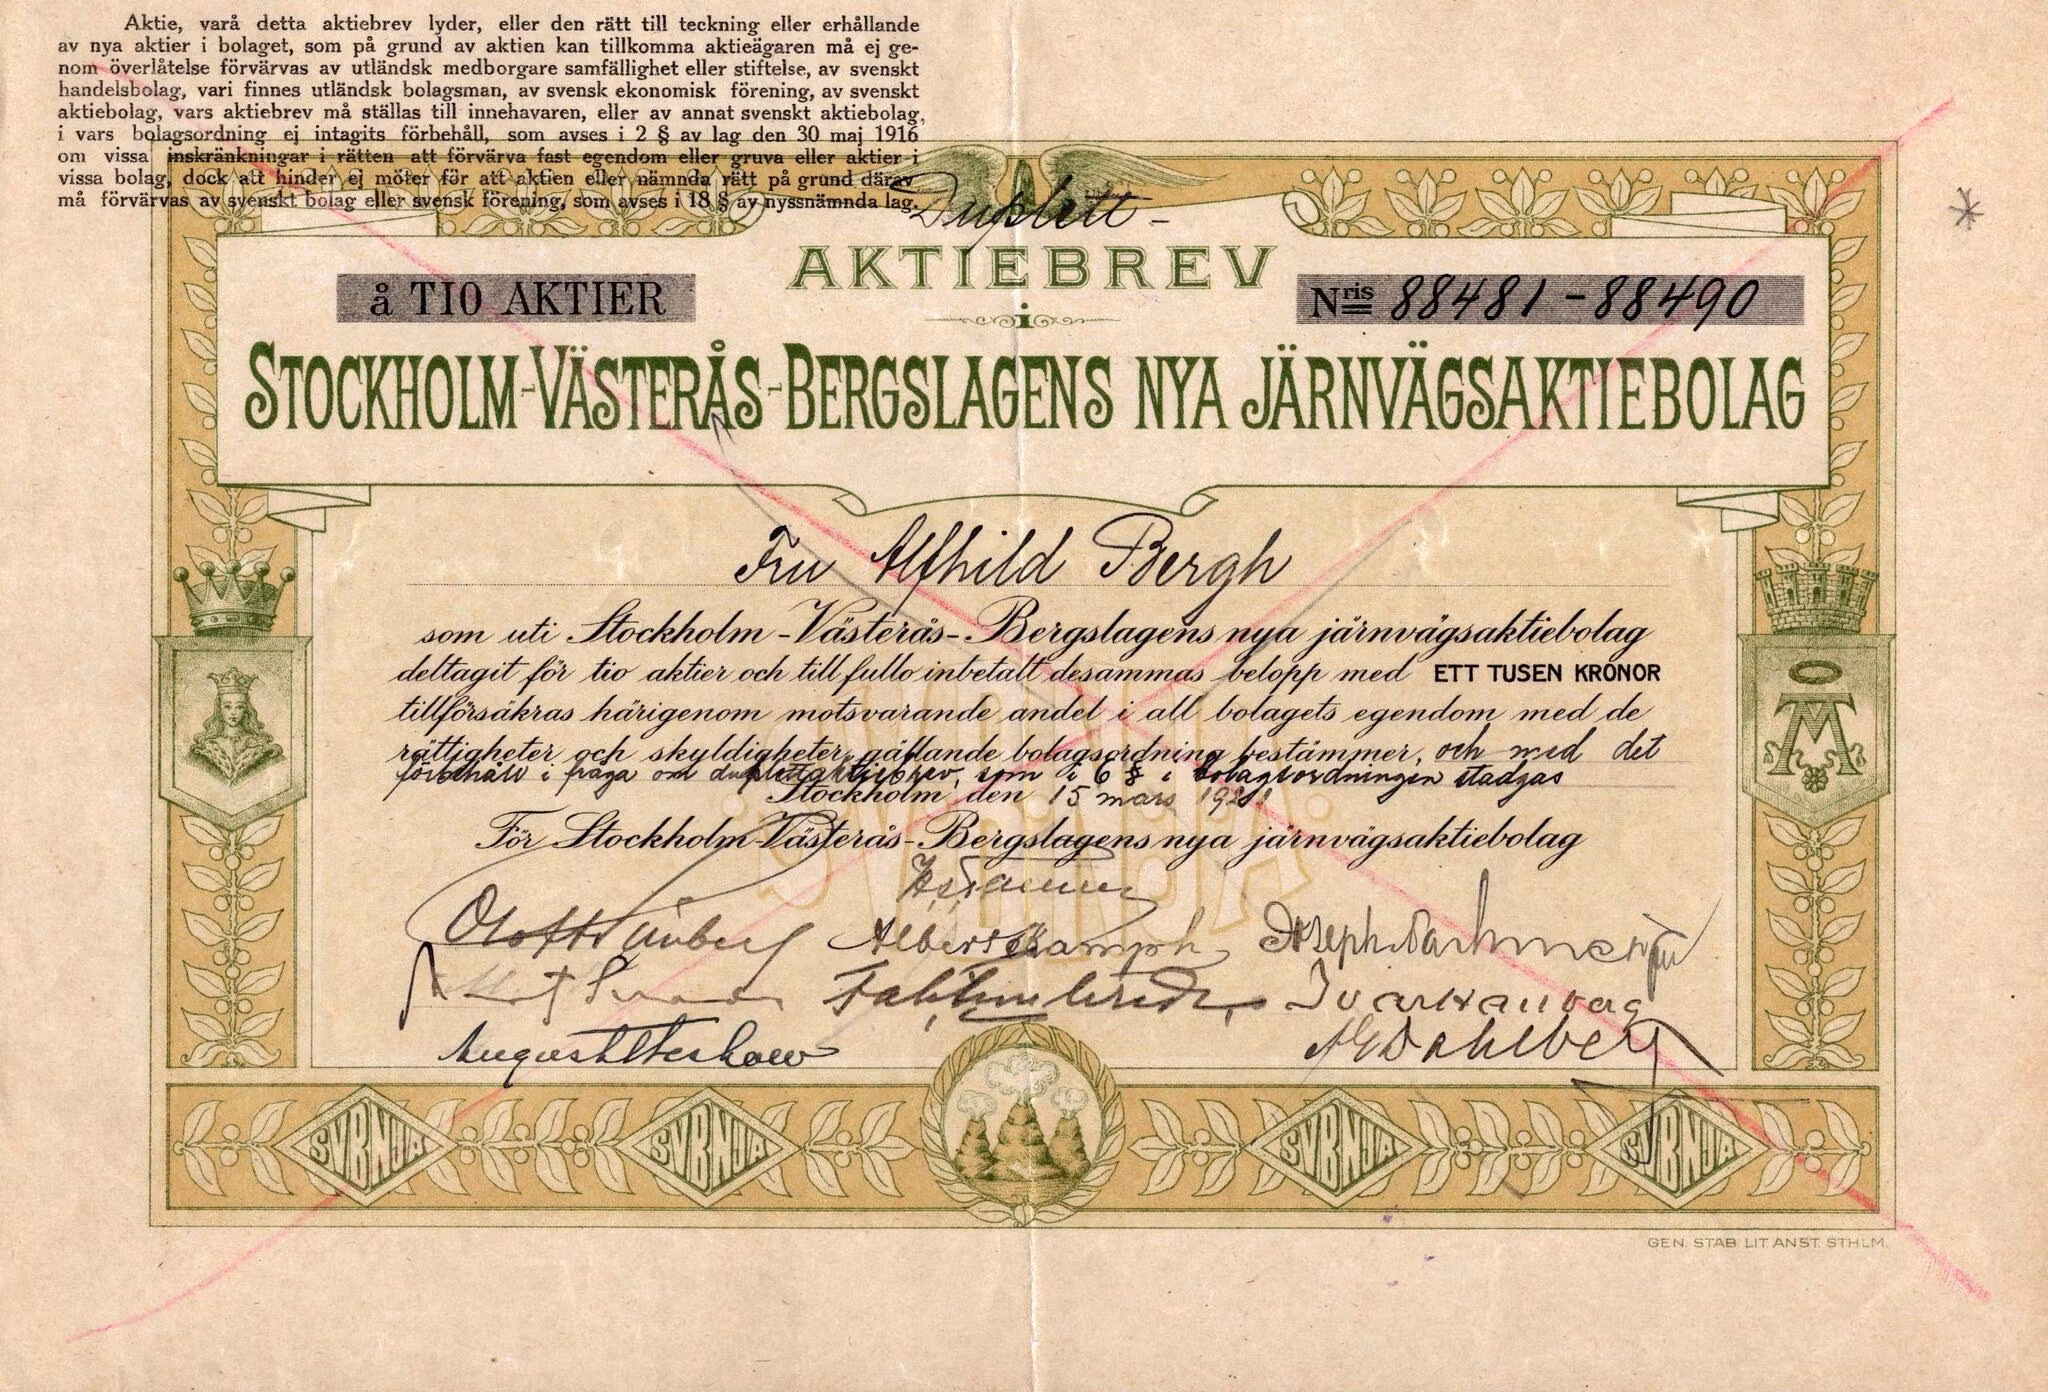 Aktie, varå detta aktiebrev lyder, eller den rätt till teckning eller erhållande
av nya aktier i bolaget, som på grund av aktien kan tillkomma aktieägaren må ej ge-
nom överlåtelse förvärvas av utländsk medborgare samfällighet eller stiftelse, av svenskt
handelsbolag, vari finnes utländsk bolagsman, av svensk ekonomisk förening, av svenskt
aktiebolag, vars aktiebrev må ställas till innehavaren, eller av annat svenskt aktiebolag,
i vars bolagsordning ej intagits förbehåll, som avses i 2 § av lag den 30 maj 1916
om vissa inskränkningar i rätten att förvärva fast egendom eller gruva eller aktier i
vissa bolag, dock att hinder ej möter för att aktien eller nämnda rätt på grund därav
må förvärvas av svenskt bolag eller svensk förening, som avses i 18 § av nyssnämnda lag.
Duplett-
AKTIEBREV
å TIO AKTIER
Nris 88481-88490
i
STOCKHOLM-VÄSTERÅS-BERGSLAGENS NYA JÄRNVÄGSAKTIEBOLAG
Fru Alfhild Bergh
som uti Stockholm-Västerås-Bergslagens nya järnvägsaktiebolag
deltagit för tio aktier och till fullo inbetalt desammas belopp med ETT TUSEN KRONOR
tillförsäkras härigenom motsvarande andel i all bolagets egendom med de
rättigheter och skyldigheter, gällande bolagsordning bestämmer, och med det
förbehåll i fråga om duplettaktiebrev, som i 6 § i bolagsordningen stadgas
Stockholm den 15 mars 1921
För Stockholm-Västerås-Bergslagens nya järnvägsaktiebolag
Joseph Nachmanson
Ivar Hauberg
Dahlberg
SVBNJA SVBNJA SVBNJA SVBNJA
GEN. STAB. LIT. ANST. STHLM.